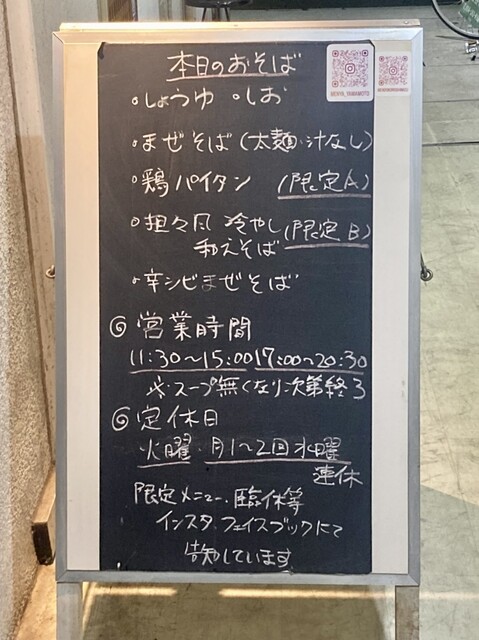 本日のおそば
・しょうゆ ・しお
・まぜそば(太麺・汁なし)
・鶏パイタン (限定A)
・担々風 冷やし
和えそば (限定B)
・辛シビまぜそば
◎営業時間
11:30〜15:00 17:00〜20:30
※スープ無くなり次第終了
◎定休日
火曜・月1〜2回水曜
連休
限定メニュー、臨休等
インスタ、フェイスブックにて
告知しています